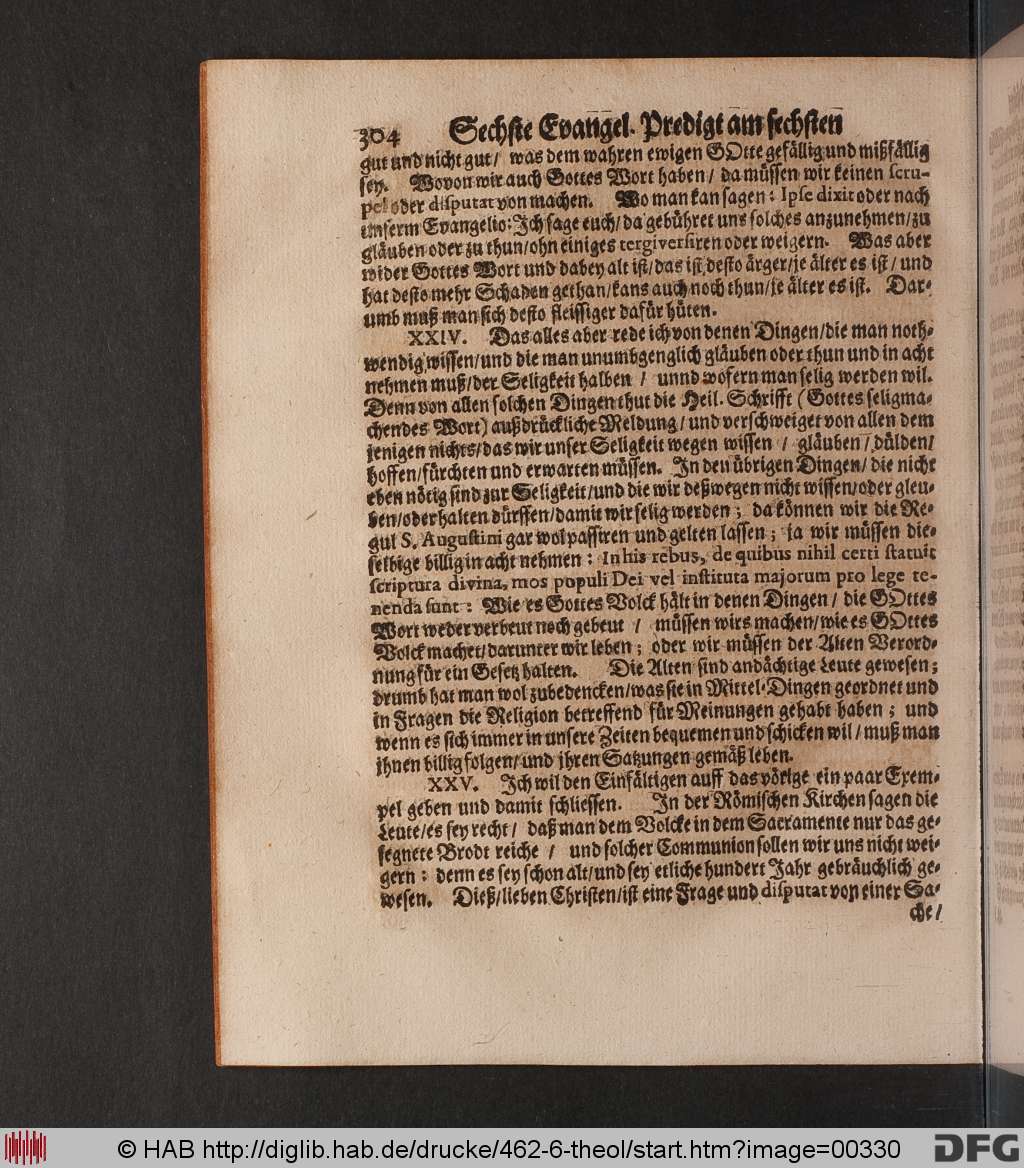 304 Sechste Evangel. Predigt am sechsten
gut und nicht gut/ was dem wahren ewigen GOtte gefällig und mißfällig
sey. Wovon wir auch Gottes Wort haben/ da müssen wir keinen scru-
pel oder disputat von machen. Wo man kan sagen: Ipse dixit oder nach
unserm Evangelio: Ich sage euch/ da gebühret uns solches anzunehmen/ zu
gläuben oder zu thun/ ohn einiges tergiversiren oder weigern. Was aber
wider Gottes Wort und dabey alt ist/ das ist desto ärger/ je älter es ist/ und
hat desto mehr Schaden gethan/ kans auch noch thun/ je älter es ist. Dar-
umb muß man sich desto fleissiger dafür hüten.
XXIV. Das alles aber rede ich von denen Dingen/ die man noth-
wendig wissen/ und die man unumbgenglich gläuben oder thun und in acht
nehmen muß/ der Seligkeit halben / unnd wofern man selig werden wil.
Denn von allen solchen Dingen thut die Heil. Schrifft (Gottes seligma-
chendes Wort) außdrückliche Meldung/ und verschweiget von allen dem
jenigen nichts/ das wir unser Seligkeit wegen wissen / gläuben/ dülden/
hoffen/ fürchten und erwarten müssen. In den übrigen Dingen/ die nicht
eben nötig sind zur Seligkeit/ und die wir deßwegen nicht wissen/ oder gleu-
ben/ oder halten dürffen/ damit wir selig werden; da können wir die Re-
gul S. Augustini gar wol passiren und gelten lassen; ja wir müssen die-
selbige billig in acht nehmen: In his rebus, de quibus nihil certi statuit
scriptura divina, mos populi Dei vel instituta majorum pro lege te-
nenda sunt: Wie es Gottes Volck hält in denen Dingen/ die GOttes
Wort weder verbeut noch gebeut / müssen wirs machen/ wie es GOttes
Volck machet/ darunter wir leben; oder wir müssen der Alten Verord-
nung für ein Gesetz halten. Die Alten sind andächtige Leute gewesen;
drumb hat man wol zubedencken/ was sie in Mittel-Dingen geordnet und
in Fragen die Religion betreffend für Meinungen gehabt haben; und
wenn es sich immer in unsere Zeiten bequemen und schicken wil/ muß man
jhnen billig folgen/ und jhren Satzungen gemäß leben.
XXV. Ich wil den Einfältigen auff das vörige ein paar Exem-
pel geben und damit schliessen. In der Römischen Kirchen sagen die
Leute/ es sey recht/ daß man dem Volcke in dem Sacramente nur das ge-
segnete Brodt reiche / und solcher Communion sollen wir uns nicht wei-
gern: denn es sey schon alt/ und sey etliche hundert Jahr gebräuchlich ge-
wesen. Dieß/ lieben Christen/ ist eine Frage und disputat von einer Sa-
che/
© HAB http://diglib.hab.de/drucke/462-6-theol/start.htm?image=00330
DFG